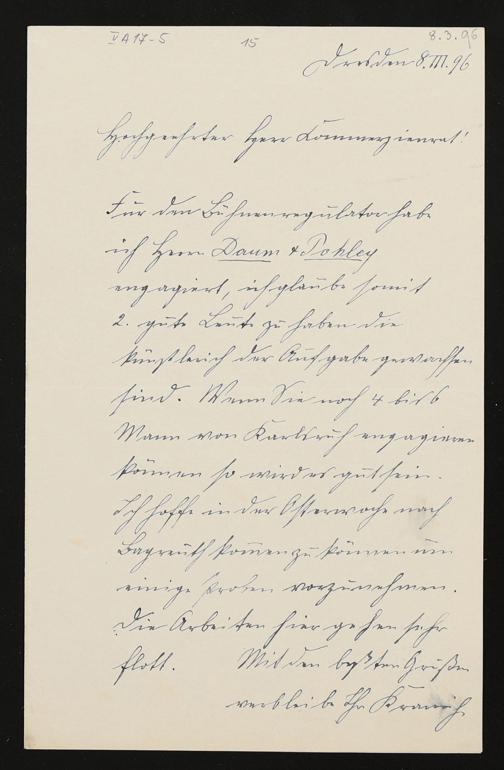 V A 17-5
15
8.3.96
Dresden 8.III.96
Hochgeehrter Herr Commerzienrat!
Für den Bühnenregulator habe
ich Herrn Daum & Pohley
engagiert, ich glaube somit
2. gute Leute zu haben die
künstlerich der Aufgabe gewachsen
sind. Wenn Sie noch 4 bis 6
Mann von Karlsruh engagieren
können so wird es gut sein.
Ich hoffe in der Osterwoche nach
Bayreuth kommen zu können um
einige Proben vorzunehmen.
Die Arbeiten hier gehen sehr
flott. Mit den besten Grüßen
verbleibe Ihr Kranich